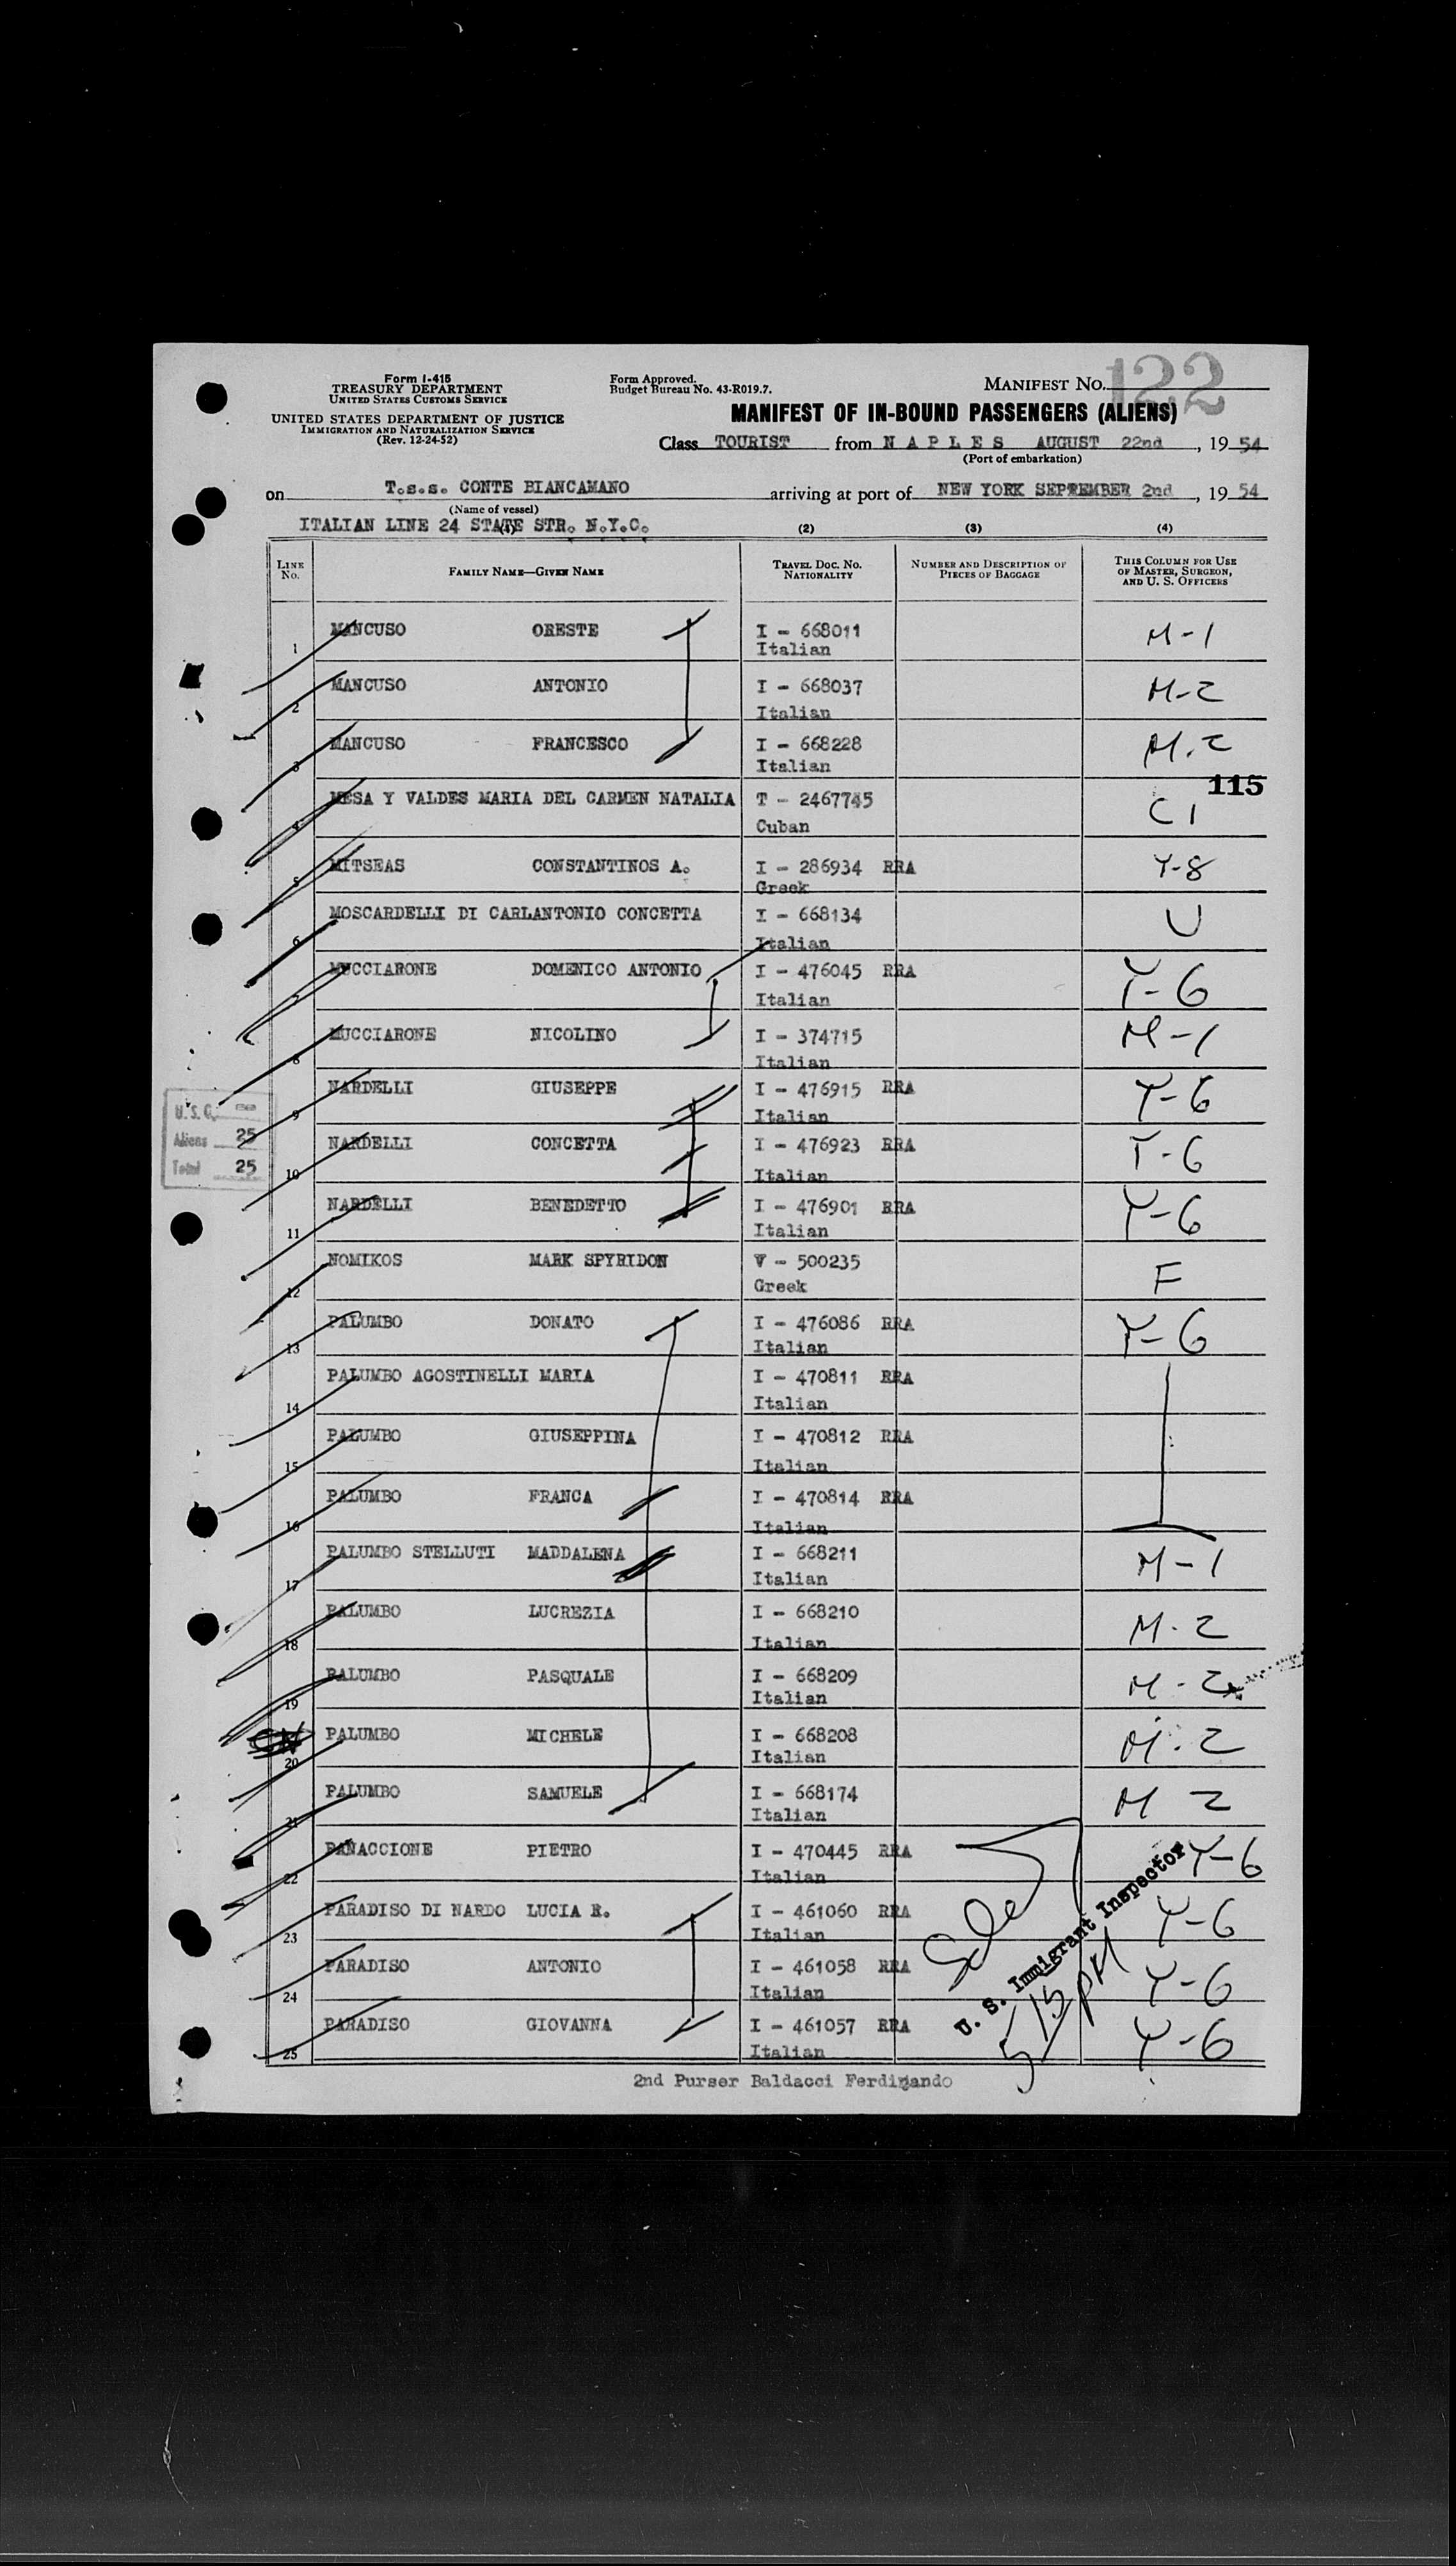 Form I-415
TREASURY DEPARTMENT
UNITED STATES CUSTOMS SERVICE
UNITED STATES DEPARTMENT OF JUSTICE
IMMIGRATION AND NATURALIZATION SERVICE
(Rev. 12-24-52)
Form Approved.
Budget Bureau No. 43-R019.7.
MANIFEST NO. 122
MANIFEST OF IN-BOUND PASSENGERS (ALIENS)
Class TOURIST from N A P L E S AUGUST 22nd, 19 54
(Port of embarkation)
on T.s.s. CONTE BIANCAMANO arriving at port of NEW YORK SEPTEMBER 2nd, 19 54
(Name of vessel)
ITALIAN LINE 24 STATE STR. N.Y.C.
(1) (2) (3) (4)
LINE NO. FAMILY NAME—GIVEN NAME TRAVEL DOC. NO. NATIONALITY NUMBER AND DESCRIPTION OF PIECES OF BAGGAGE THIS COLUMN FOR USE OF MASTER, SURGEON, AND U. S. OFFICERS
1 MANCUSO ORESTE I - 668011 Italian M-1
2 MANCUSO ANTONIO I - 668037 Italian M-2
3 MANCUSO FRANCESCO I - 668228 Italian M-2
115
4 MESA Y VALDES MARIA DEL CARMEN NATALIA T - 2467745 Cuban C 1
5 MITSEAS CONSTANTINOS A. I - 286934 RRA Greek Y-8
6 MOSCARDELLI DI CARLANTONIO CONCETTA I - 668134 Italian U
7 MUCCIARONE DOMENICO ANTONIO I - 476045 RRA Italian Y-6
8 MUCCIARONE NICOLINO I - 374715 Italian M-1
9 NARDELLI GIUSEPPE I - 476915 RRA Italian Y-6
10 NARDELLI CONCETTA I - 476923 RRA Italian Y-6
11 NARDELLI BENEDETTO I - 476901 RRA Italian Y-6
12 NOMIKOS MARK SPYRIDON V - 500235 Greek F
13 PALUMBO DONATO I - 476086 RRA Italian Y-6
14 PALUMBO AGOSTINELLI MARIA I - 470811 RRA Italian
15 PALUMBO GIUSEPPINA I - 470812 RRA Italian
16 PALUMBO FRANCA I - 470814 RRA Italian
17 PALUMBO STELLUTI MADDALENA I - 668211 Italian M-1
18 PALUMBO LUCREZIA I - 668210 Italian M-2
19 PALUMBO PASQUALE I - 668209 Italian M-2
20 PALUMBO MICHELE I - 668208 Italian M-2
21 PALUMBO SAMUELE I - 668174 Italian M 2
22 PANACCIONE PIETRO I - 470445 RRA Italian Y-6
23 PARADISO DI NARDO LUCIA E. I - 461060 RRA Italian Y-6
24 PARADISO ANTONIO I - 461058 RRA Italian Y-6
25 PARADISO GIOVANNA I - 461057 RRA Italian Y-6
U.S.C.
Aliens 25
Total 25
U. S. Immigrant Inspector
2nd Purser Baldacci Ferdinando